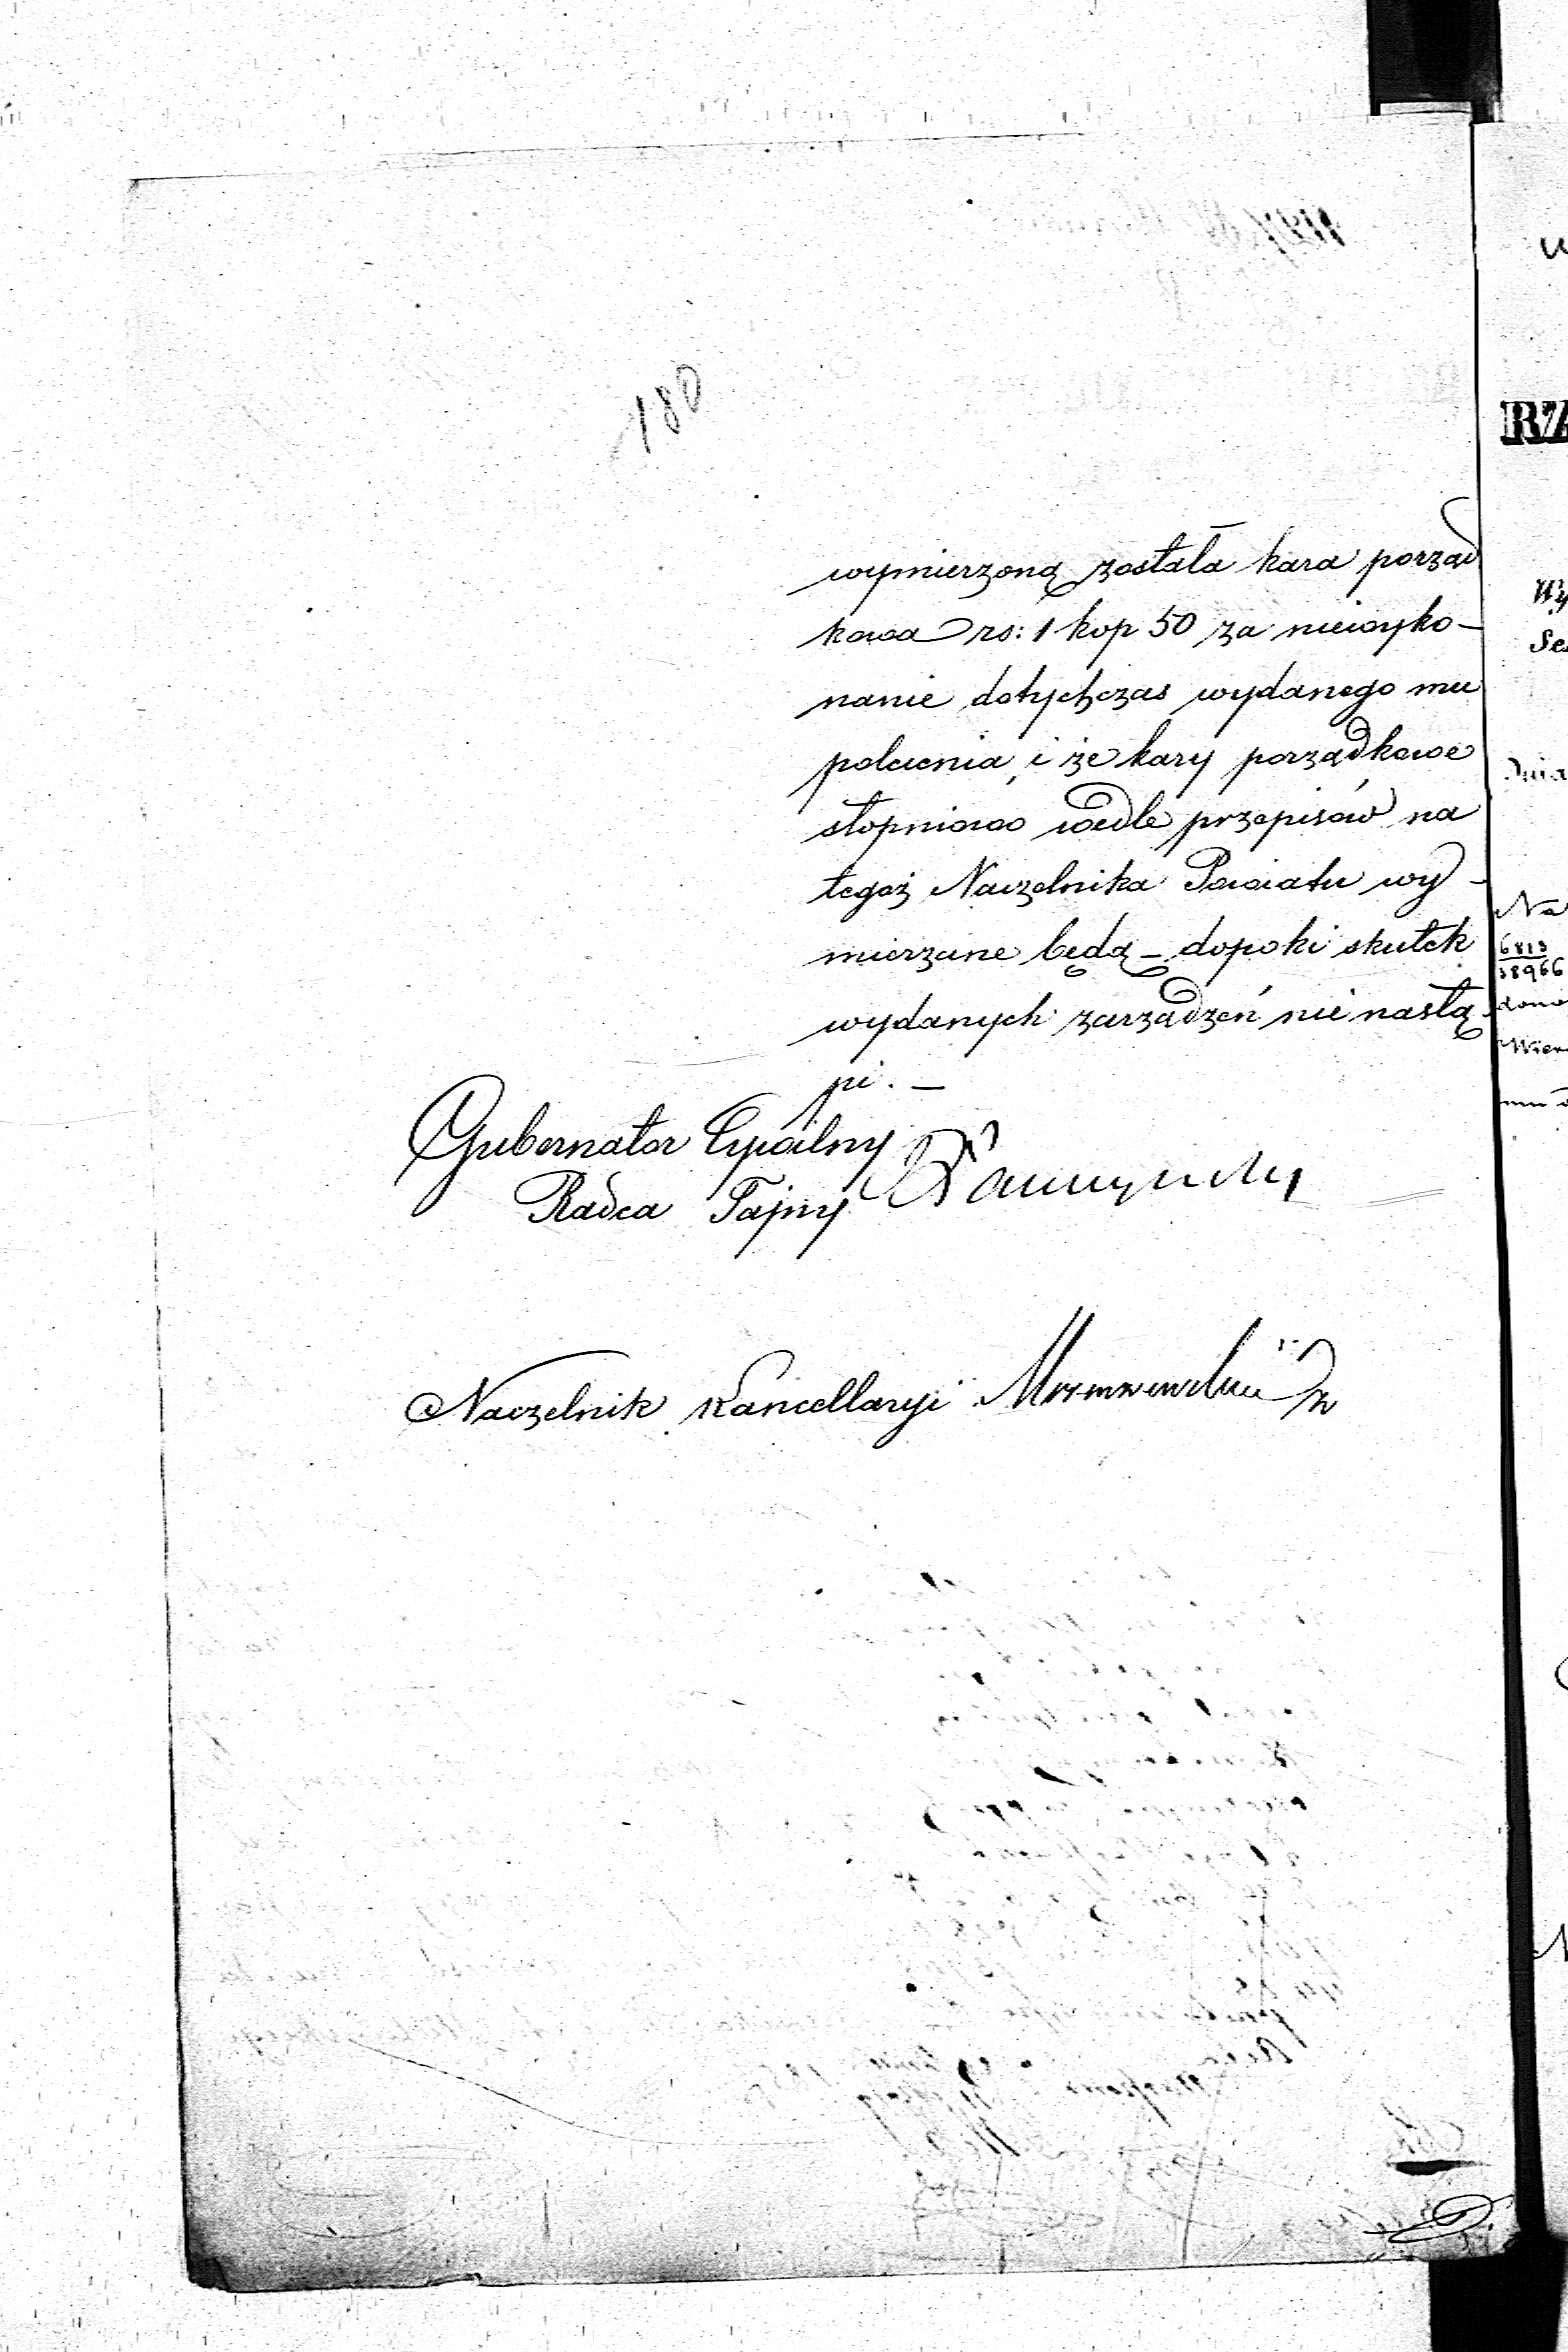 180
wymierzoną została kara porząd
kowa rs: 1 kop 50 za niewyko-
nanie dotychczas wydanego mu
polecenia, i że kary porządkowe
stopniowo wedle przepisów na
tegoż Naczelnika Powiatu wy-
mierzane będą – dopoki skutek
wydanych zarządzeń nie nastą
pi. –
Gubernator Cywilny
Radca Tajny
Naczelnik Kancellaryi
RZ
Wy
Se
dnia
Na
6813
38966
dono